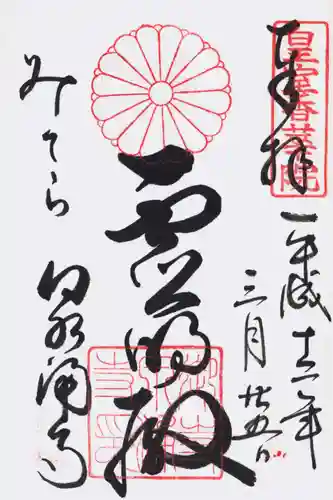 皇室香華院
奉拝
平成十二年
三月廿五日
霊明殿
みてら
泉涌寺